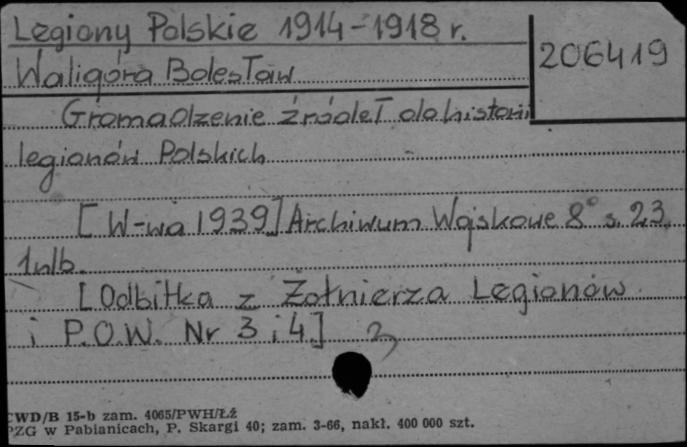 Legiony Polskie 1914-1918 r.
206419
Waligóra Bolesław
Gromadzenie źródeł do historii
legionów Polskich
[W-wa 1939] Archiwum Wojskowe 8° s. 23,
1 nlb.
[Odbitka z Żołnierza Legionów
i P.O.W. Nr 3 i 4]
CWD/B 15-b zam. 4065/PWH/Łź
PZG w Pabianicach, P. Skargi 40; zam. 3-66, nakł. 400 000 szt.